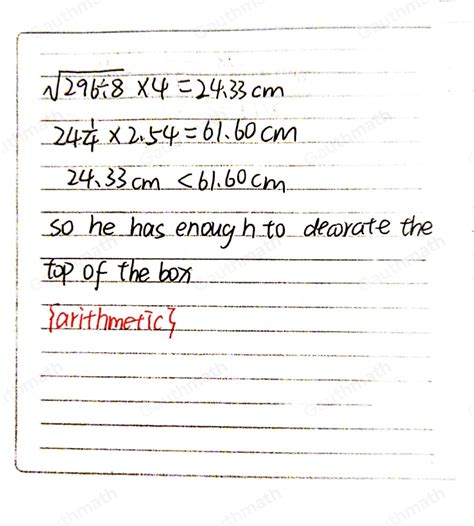 √296÷8 ×4 =24.33 cm
24 1/4 × 2.54 = 61.60 cm
24.33 cm < 61.60 cm
so he has enough to decorate the
top of the box
{arithmetic}